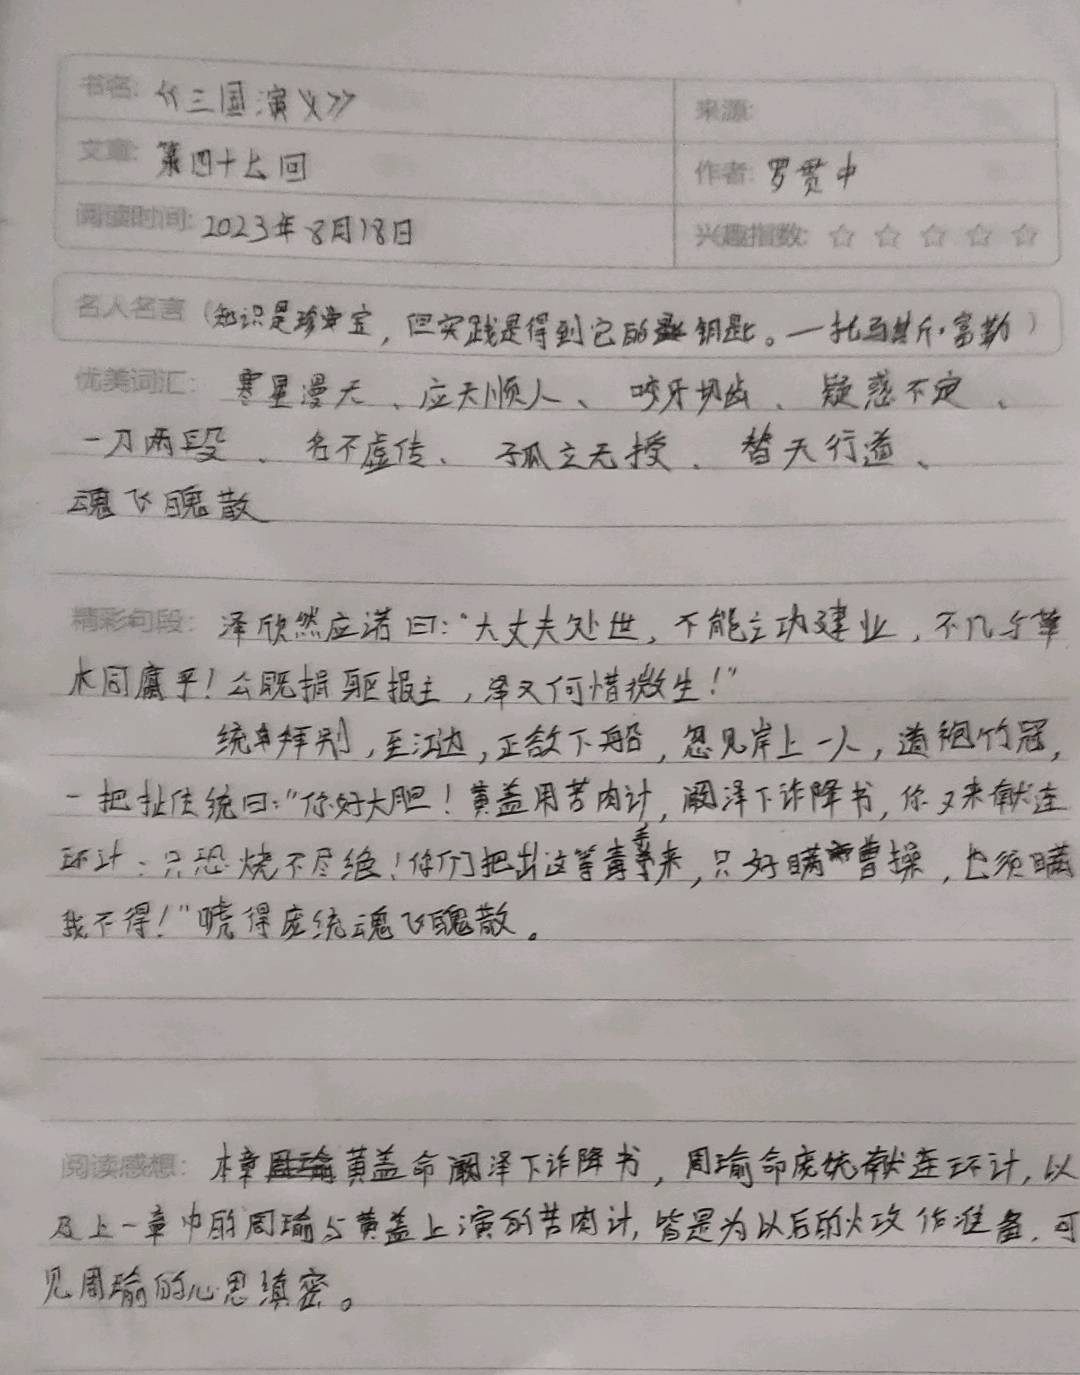 书名: 《三国演义》
来源:
文章: 第四十七回
作者: 罗贯中
阅读时间: 2023年8月18日
兴趣指数: ☆ ☆ ☆ ☆ ☆
名人名言 (知识是珍宝，但实践是得到它的钥匙。—托马斯·富勒)
优美词汇: 寒星漫天、应天顺人、咬牙切齿、疑惑不定、
一刀两段、名不虚传、孤立无援、替天行道、
魂飞魄散
精彩句段: 泽欣然应诺曰:“大丈夫处世，不能立功建业，不几与草
木同腐乎！公既捐躯报主，泽又何惜微生！”
统拜别，至江边，正欲下船，忽见岸上一人，道袍竹冠，
一把扯住统曰:“你好大胆！黄盖用苦肉计，阚泽下诈降书，你又来献连
环计：只恐烧不尽绝！你们把出这等毒手来，只好瞒曹操，也须瞒
我不得！”唬得庞统魂飞魄散。
阅读感想: 本章黄盖命阚泽下诈降书，周瑜命庞统献连环计，以
及上一章中的周瑜与黄盖上演的苦肉计，皆是为以后的火攻作准备，可
见周瑜的心思缜密。